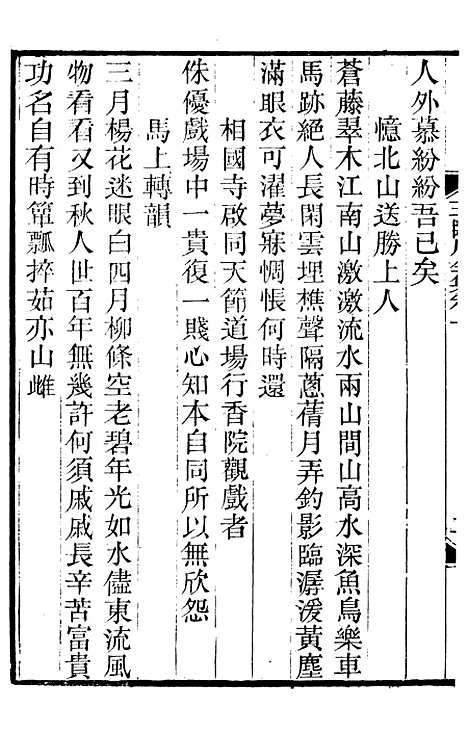 人外慕紛紛吾已矣
憶北山送勝上人
蒼藤翠木江南山激激流水兩山間山高水深魚鳥樂車
馬跡絕人長閑雲埋樵聲隔蔥蒨月弄釣影臨潺湲黃塵
滿眼衣可濯夢寐惆悵何時還
相國寺啟同天節道場行香院觀戲者
侏優戲場中一貴復一賤心知本自同所以無欣怨
馬上轉韻
三月楊花迷眼白四月柳條空老碧年光如水儘東流風
物看看又到秋人世百年無幾許何須戚戚長辛苦富貴
功名自有時簞瓢捽茹亦山雌